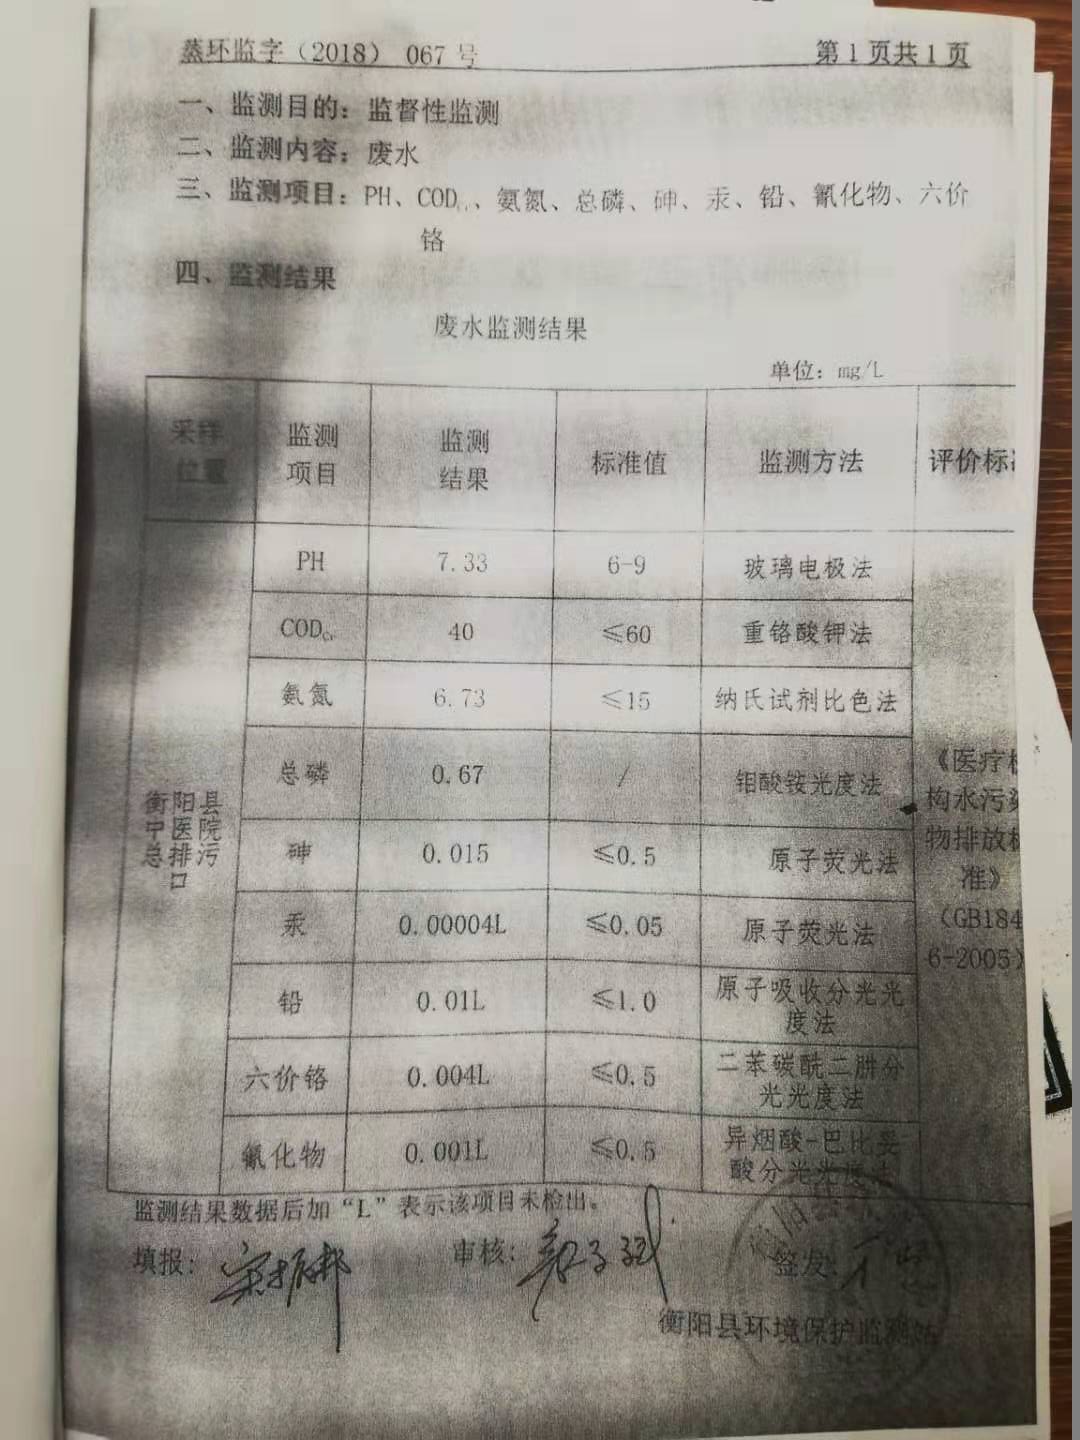 蒸环监字（2018） 067 号
第 1 页共 1 页
一、监测目的：监督性监测
二、监测内容：废水
三、监测项目：PH、CODCr、氨氮、总磷、砷、汞、铅、氰化物、六价
铬
四、监测结果
废水监测结果
单位：mg/L
采样
位置
监测
项目
监测
结果
标准值
监测方法
评价标
衡阳县
中医院
总排污
口
PH 7.33 6-9 玻璃电极法
CODCr 40 ≤60 重铬酸钾法
氨氮 6.73 ≤15 纳氏试剂比色法
总磷 0.67 / 钼酸铵光度法
砷 0.015 ≤0.5 原子荧光法
汞 0.00004L ≤0.05 原子荧光法
铅 0.01L ≤1.0 原子吸收分光光
度法
六价铬 0.004L ≤0.5 二苯碳酰二肼分
光光度法
氰化物 0.001L ≤0.5 异烟酸-巴比妥
酸分光光度法
《医疗
构水污
物排放
准》
（GB184
6-2005）
监测结果数据后加“L”表示该项目未检出。
填报：
审核：
签发：
衡阳县环境保护监测站